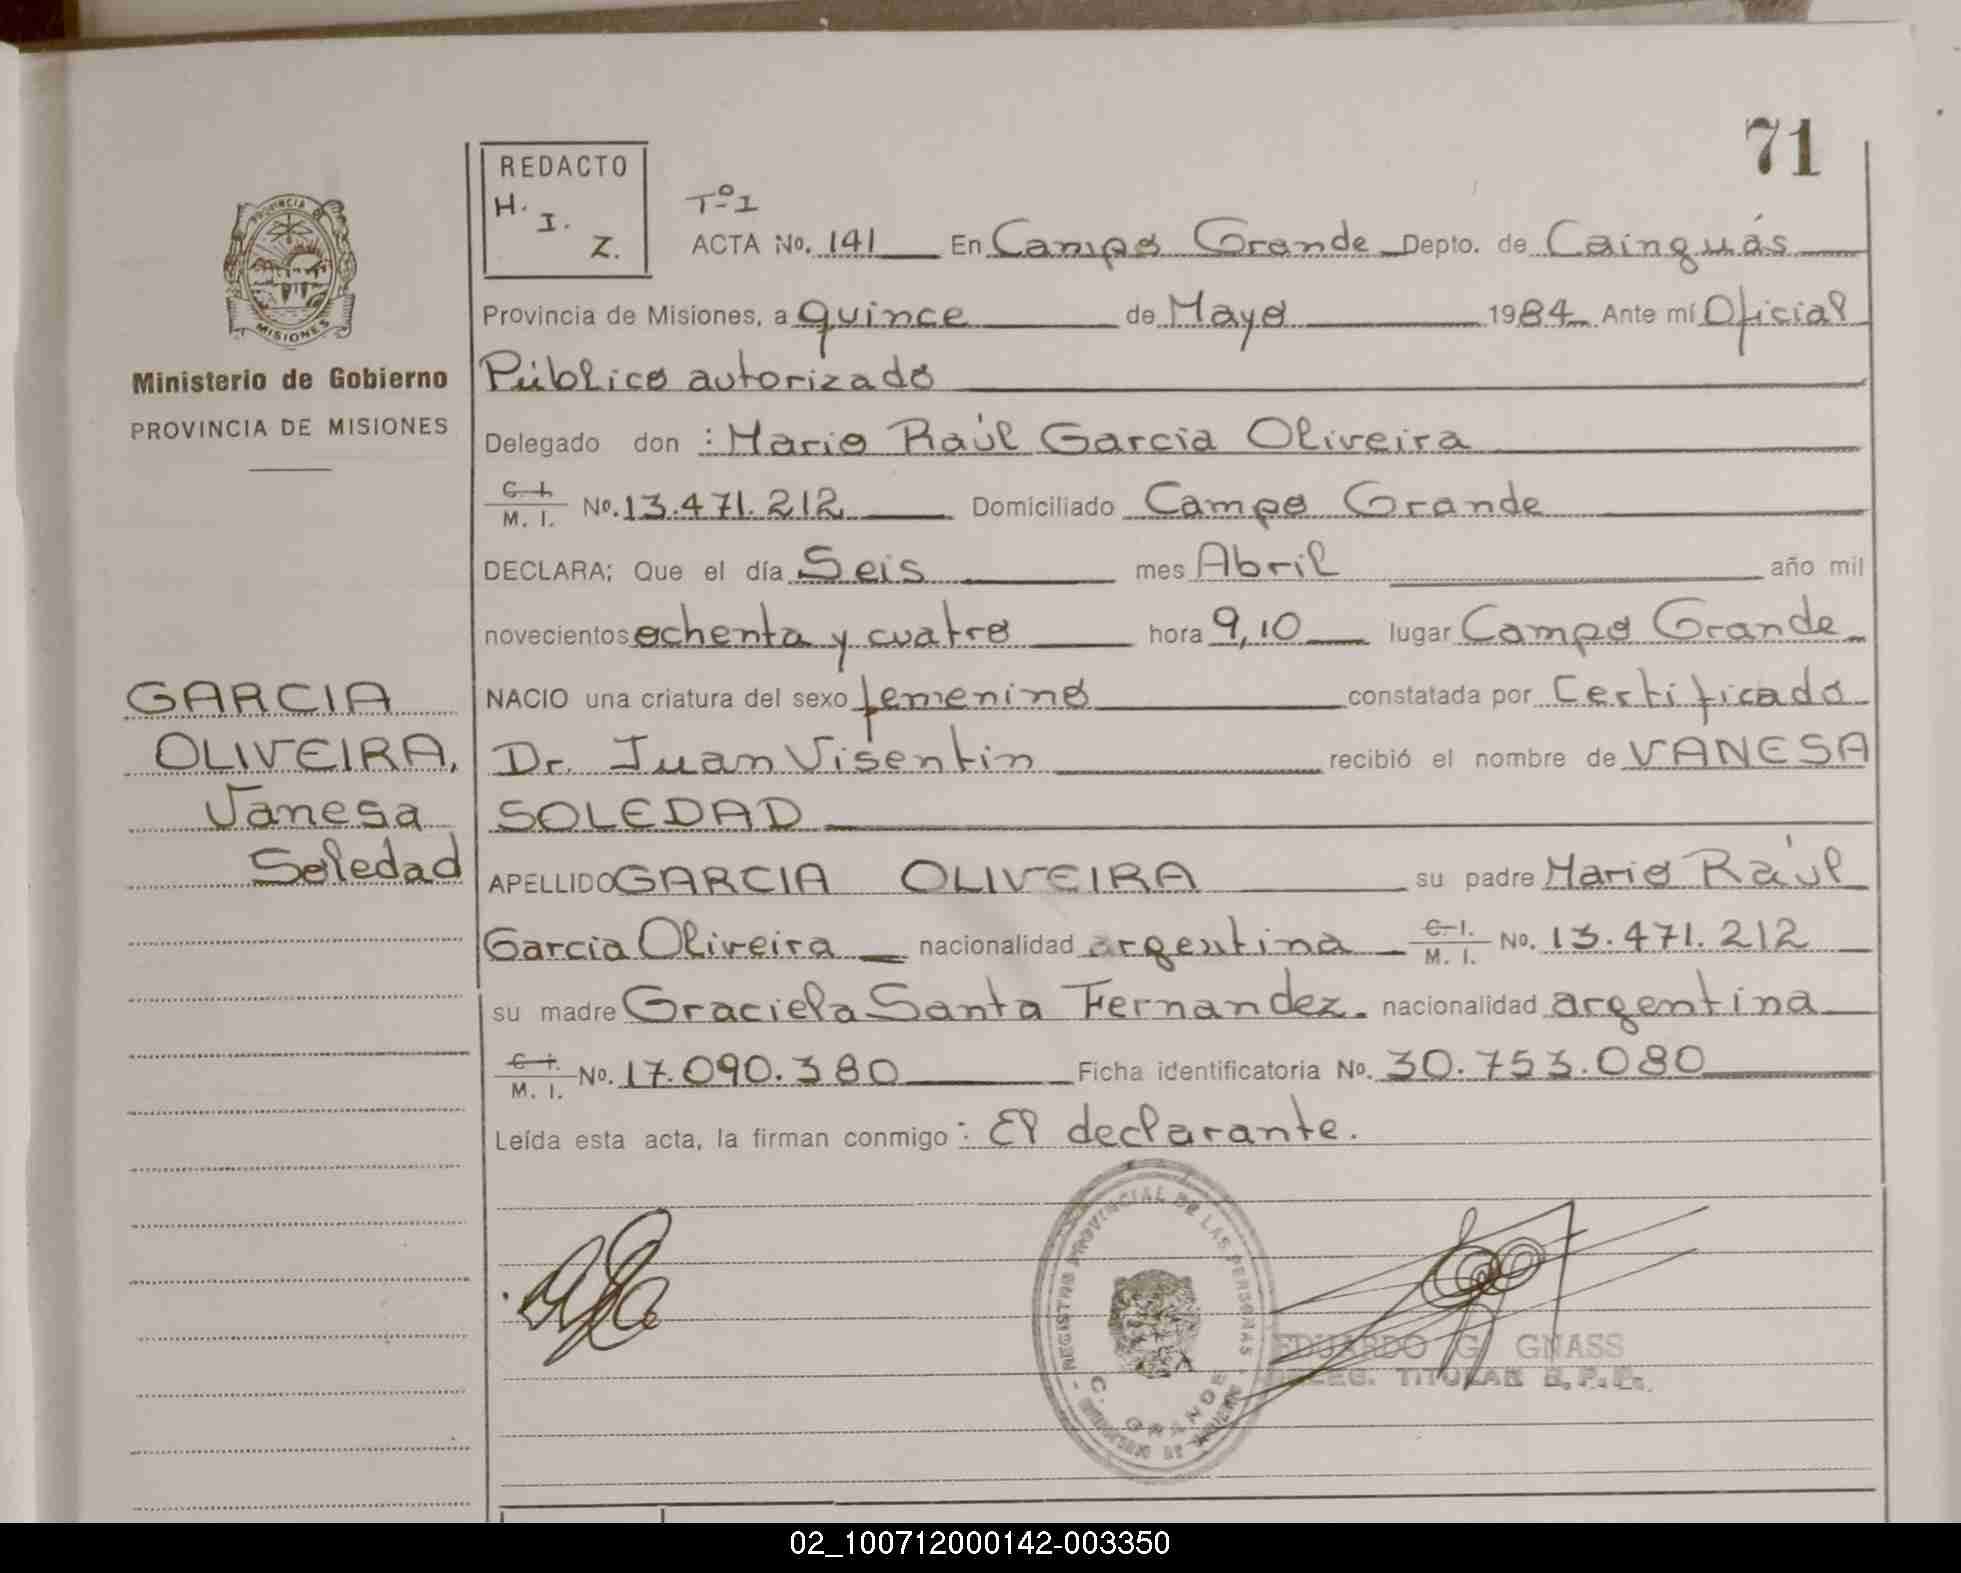 71
REDACTO
H. I. Z.
Tº I
ACTA No. 141 En Campo Grande Depto. de Cainguás
Provincia de Misiones, a quince de Mayo 1984 Ante mí Oficial
Público autorizado
Delegado don : Mario Raúl Garcia Oliveira
C. I. / M. I. No. 13.471.212 Domiciliado Campo Grande
DECLARA; Que el día Seis mes Abril año mil
novecientos ochenta y cuatro hora 9,10 lugar Campo Grande
NACIO una criatura del sexo femenino constatada por Certificado
Dr. Juan Visentin recibió el nombre de VANESA
SOLEDAD
APELLIDO GARCIA OLIVEIRA su padre Mario Raúl
Garcia Oliveira nacionalidad argentina C. I. / M. I. No. 13.471.212
su madre Graciela Santa Fernandez. nacionalidad argentina
C. I. / M. I. No. 17.090.380 Ficha identificatoria No. 30.753.080
Leída esta acta, la firman conmigo : El declarante.
PROVINCIA DE
MISIONES
Ministerio de Gobierno
PROVINCIA DE MISIONES
GARCIA
OLIVEIRA,
Vanesa
Soledad
REGISTRO PROVINCIAL DE LAS PERSONAS
C. GRANDE
EDUARDO G. GNASS
DELEG. TITULAR R. P. P.
02_100712000142-003350